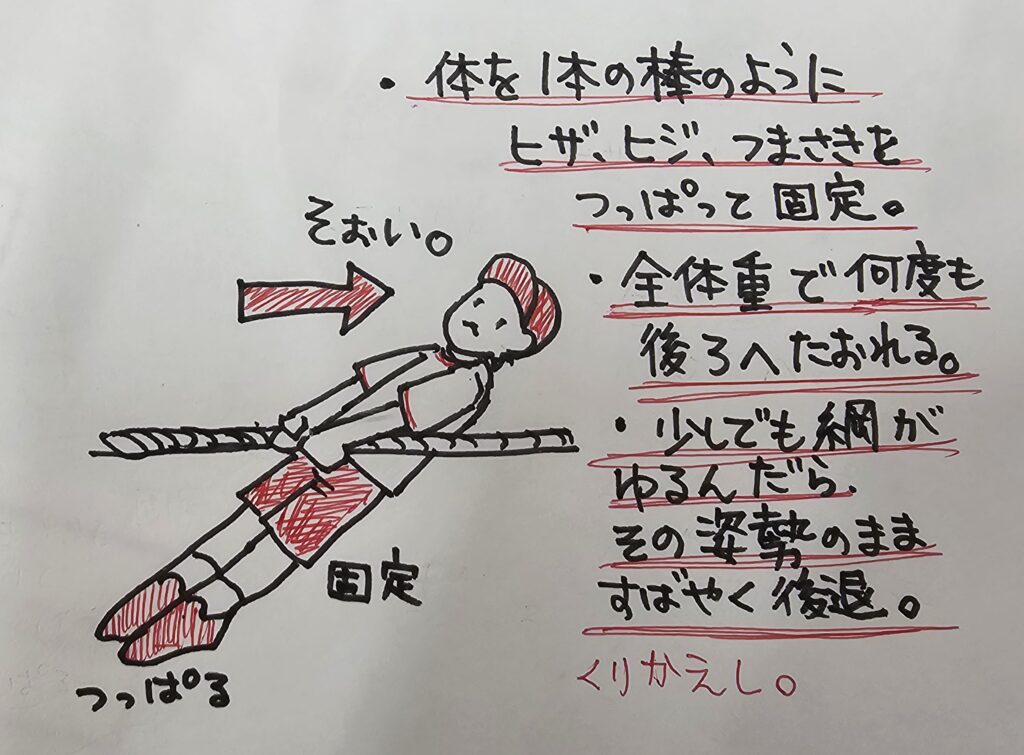 ・体を1本の棒のように
ヒザ、ヒジ、つまさきを
つっぱって固定。
そおい。
・全体重で何度も
後ろへたおれる。
・少しでも綱が
ゆるんだら、
その姿勢のまま
すばやく後退。
くりかえし。
固定
つっぱる